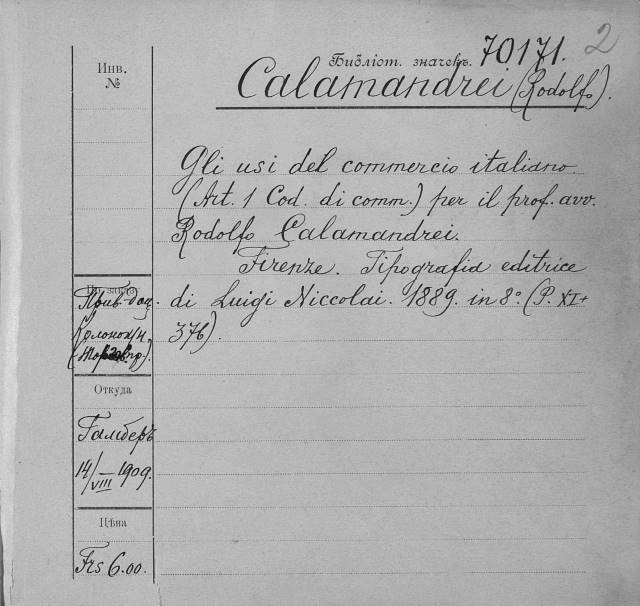 2
Библіот. значекъ. 70171.
Инв.
№
Calamandrei (Rodolfo).
Gli usi del commercio italiano
(Art. 1 Cod. di comm.) per il prof. avv.
Rodolfo Calamandrei.
Firenze. Tipografia editrice
di Luigi Niccolai. 1889. in 8º. (P. XI+
376).
Прив.-доц.
Откуда
14/VIII 1909.
Цѣна
Frs 6.00.